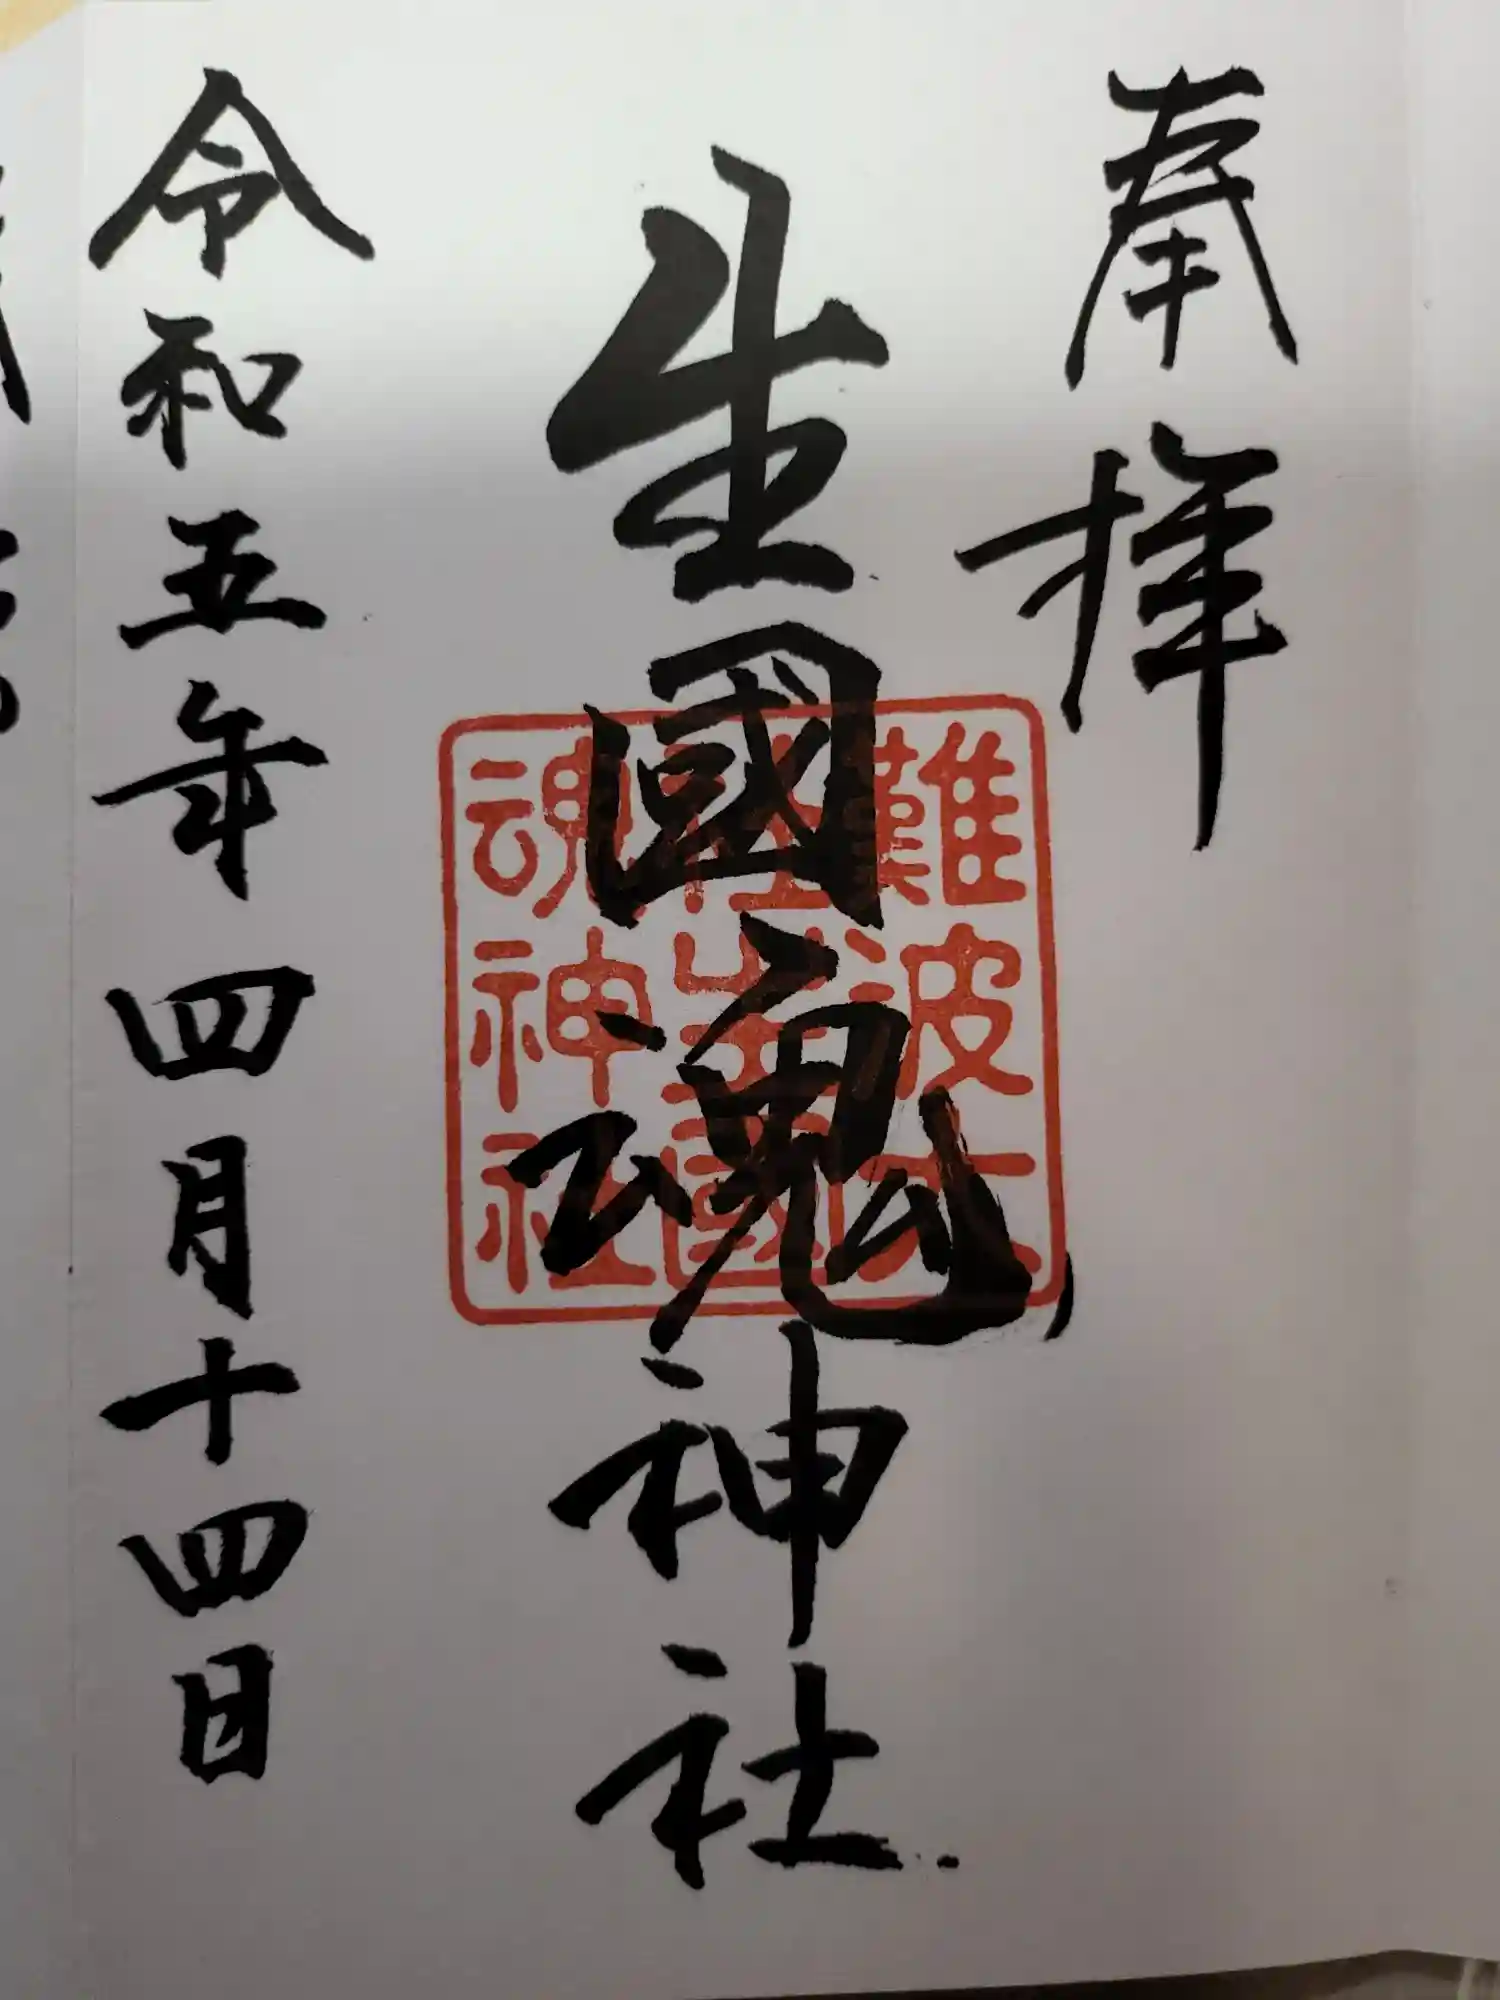 奉拝
難波大
社生國
魂神社
生國魂神社
令和五年四月十四日